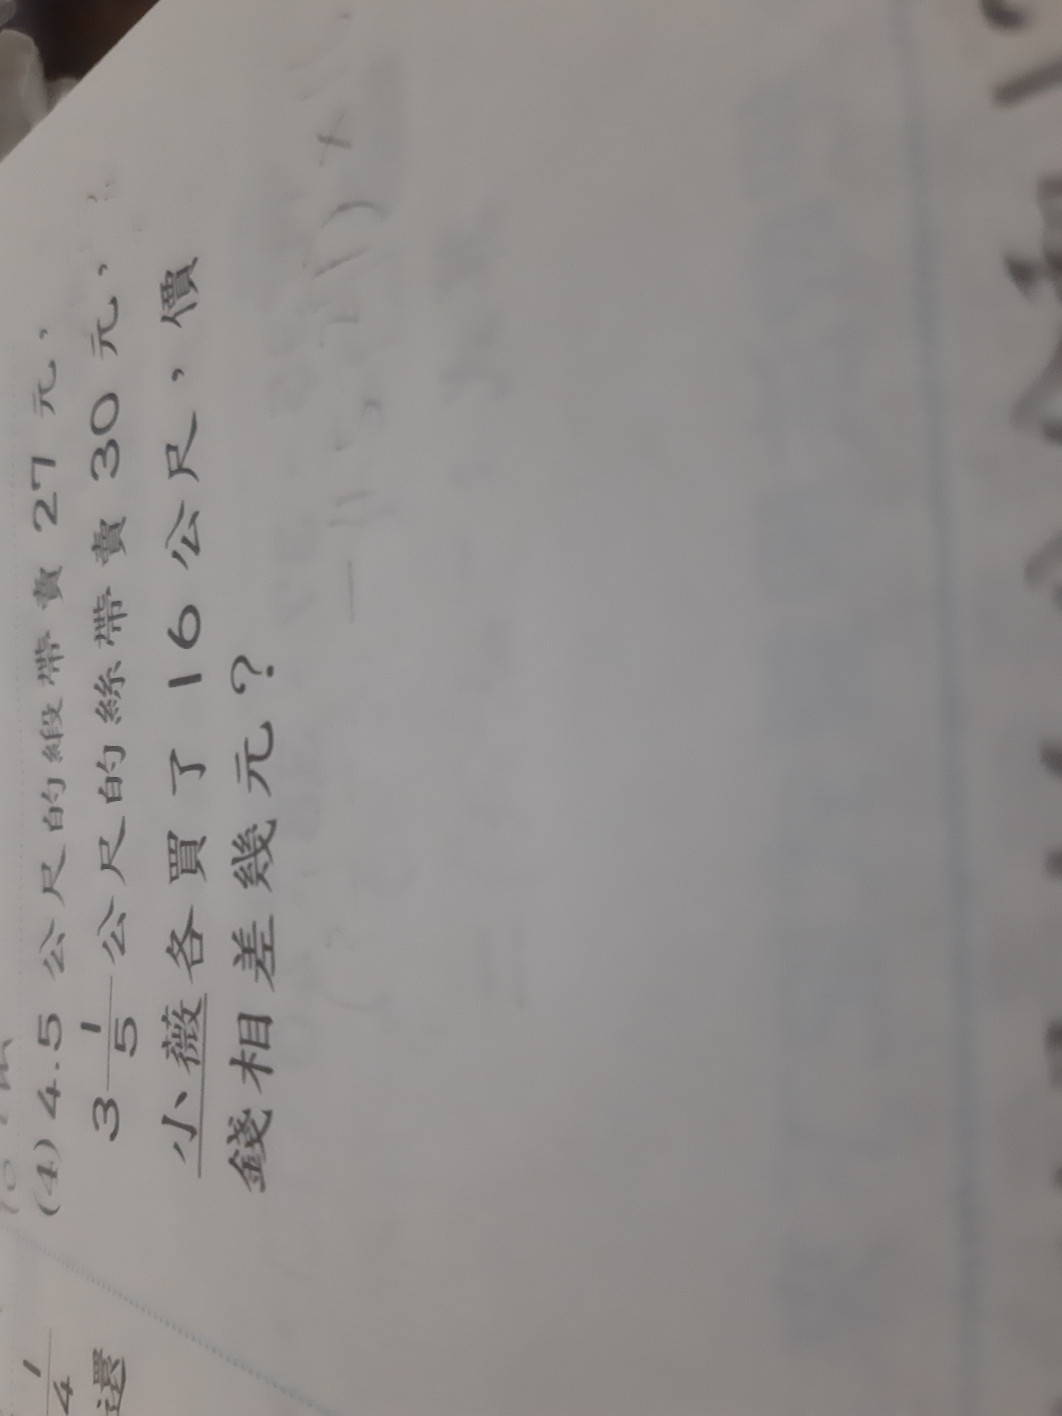 (4) 4.5 公尺的緞帶賣 27 元,
3 1/5 公尺的絲帶賣 30 元,
小薇各買了 16 公尺,價
錢相差幾元?
1/4
還